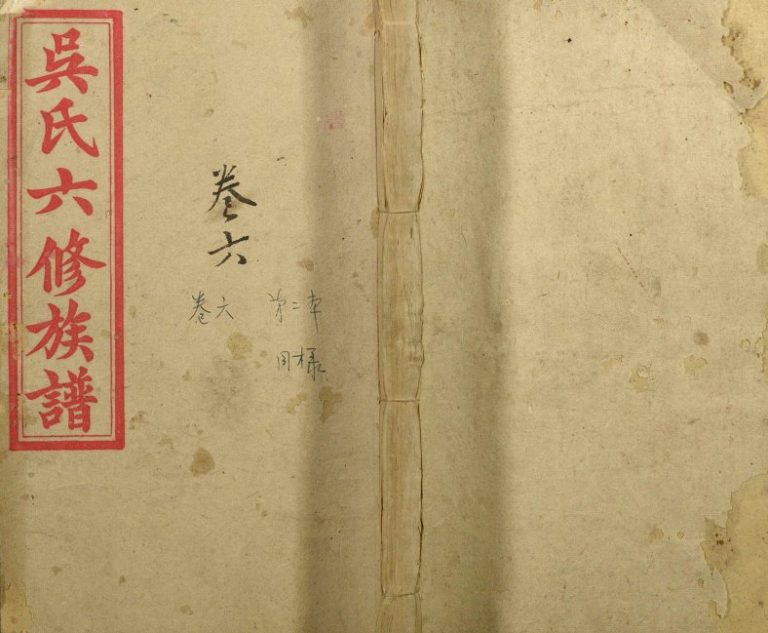 吳氏六修族譜
卷六
卷六
第二本
同樣